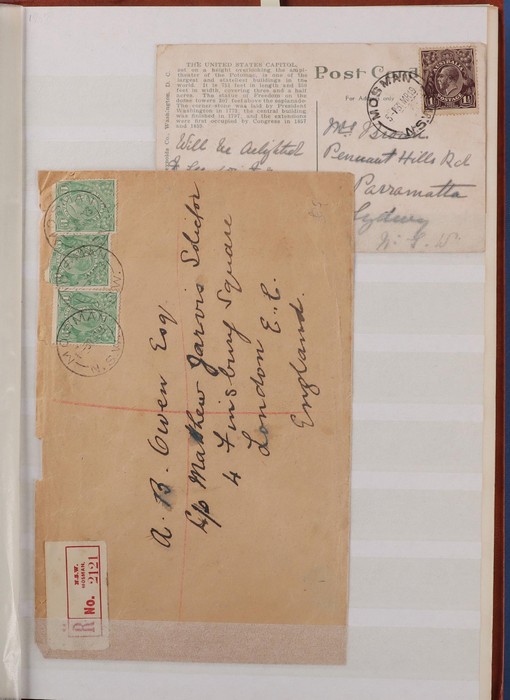 THE UNITED STATES CAPITOL,
set on a height overlooking the
theater of the Potomac, is one of the
largest and stateliest buildings in the
world. It is 751 feet in length and 350
feet in width, covering three and a half
acres. The statue of Freedom on the
dome towers 307 feet above the esplanade.
The corner-stone was laid by President
Washington in 1793, the central building
was finished in 1827, and the extensions
were first occupied by Congress in 1857
and 1859.
Washington, D. C.
Post Card
For Ad only
POSTAGE
MOSMAN
N.S.
Mrs
Pennant Hills Rd
Parramatta
Sydney
N. S. W.
Will be delighted
MOSMAN
N.S.W.
A. B. Owen Esq.
c/o Matthew Jarvis Solicitor
4 Finsbury Square
London E. C.
England.
N.S.W.
MOSMAN.
R No. 2121